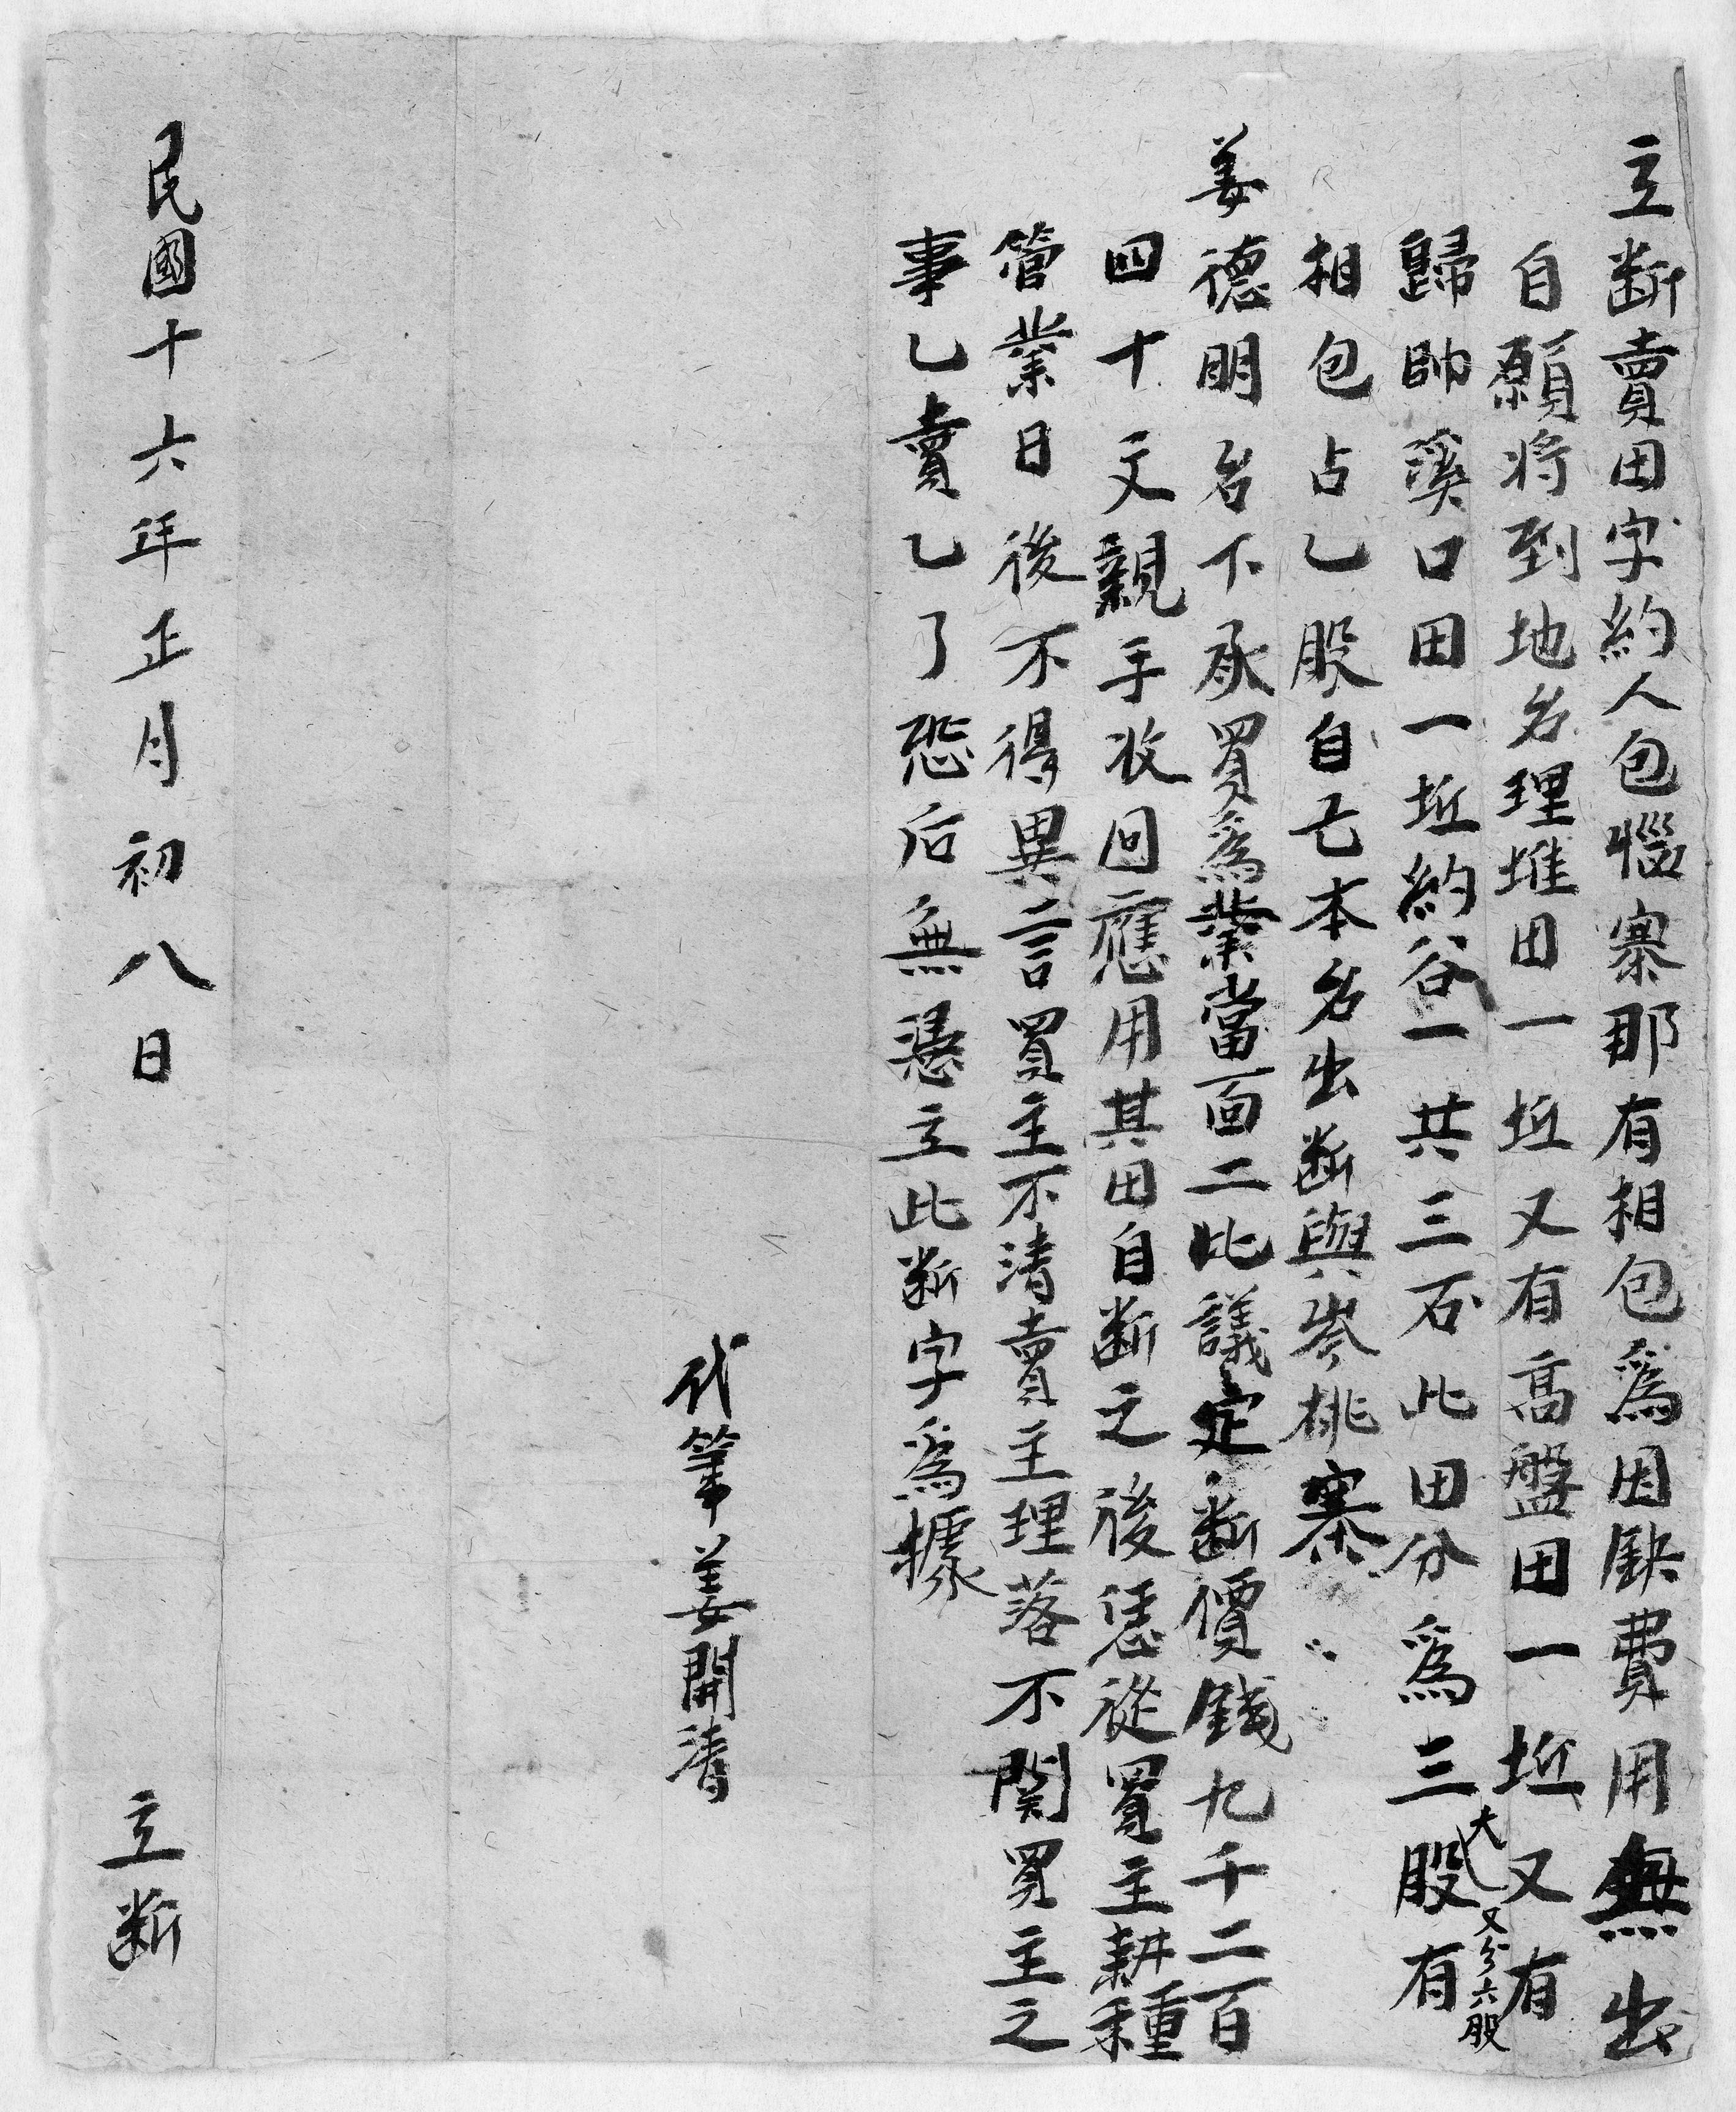 立断賣田字約人包惱寨那有相包爲因缺費用無出
自願將到地名理堆田一坵又有高盤田一坵又有
歸帥溪口田一坵約谷一共三石此田分爲三大股又分六股有
相包占乙股自己本名出断與岑桃寨〻
姜德明名下承買爲業當面二比議定断價錢九千二百
四十文親手收回應用其田自断之後憑從買主耕種
管業日後不得異言買主不清賣主理落不関買主之
事乙賣乙了恐后無憑立此断字爲據
代筆姜開清
民國十六年正月初八日 立断